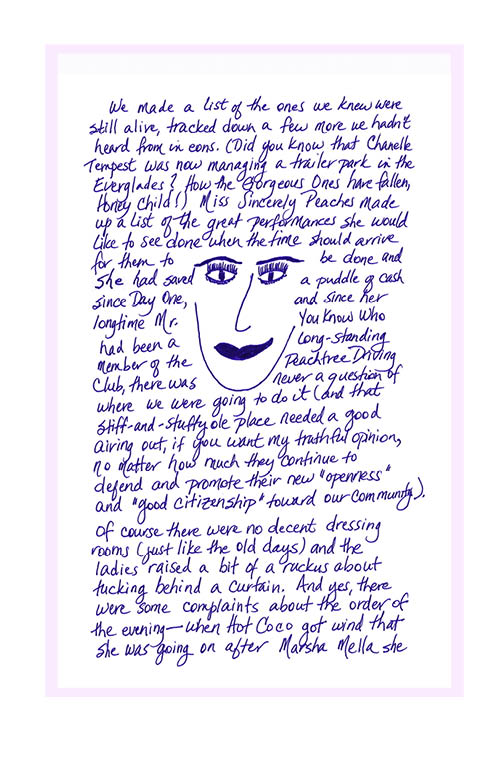 We made a list of the ones we knew were
still alive, tracked down a few more we hadn't
heard from in eons. (Did you know that Chanelle
Tempest was now managing a trailer park in the
Everglades? How the Gorgeous Ones have fallen,
Honey Child!) Miss Sincerely Peaches made
up a list of the great performances she would
like to see done when the time should arrive
for them to be done and
she had saved a puddle of cash
since Day One, and since her
longtime Mr. You Know Who
had been a long-standing
member of the Peachtree Driving
Club, there was never a question of
where we were going to do it (and that
stiff-and-stuffy ole place needed a good
airing out, if you want my truthful opinion,
no matter how much they continue to
defend and promote their new "openness"
and "good citizenship" toward our community).
Of course there were no decent dressing
rooms (just like the old days) and the
ladies raised a bit of a ruckus about
tucking behind a curtain. And yes, there
were some complaints about the order of
the evening—when Hot Coco got wind that
she was going on after Marsha Mella she